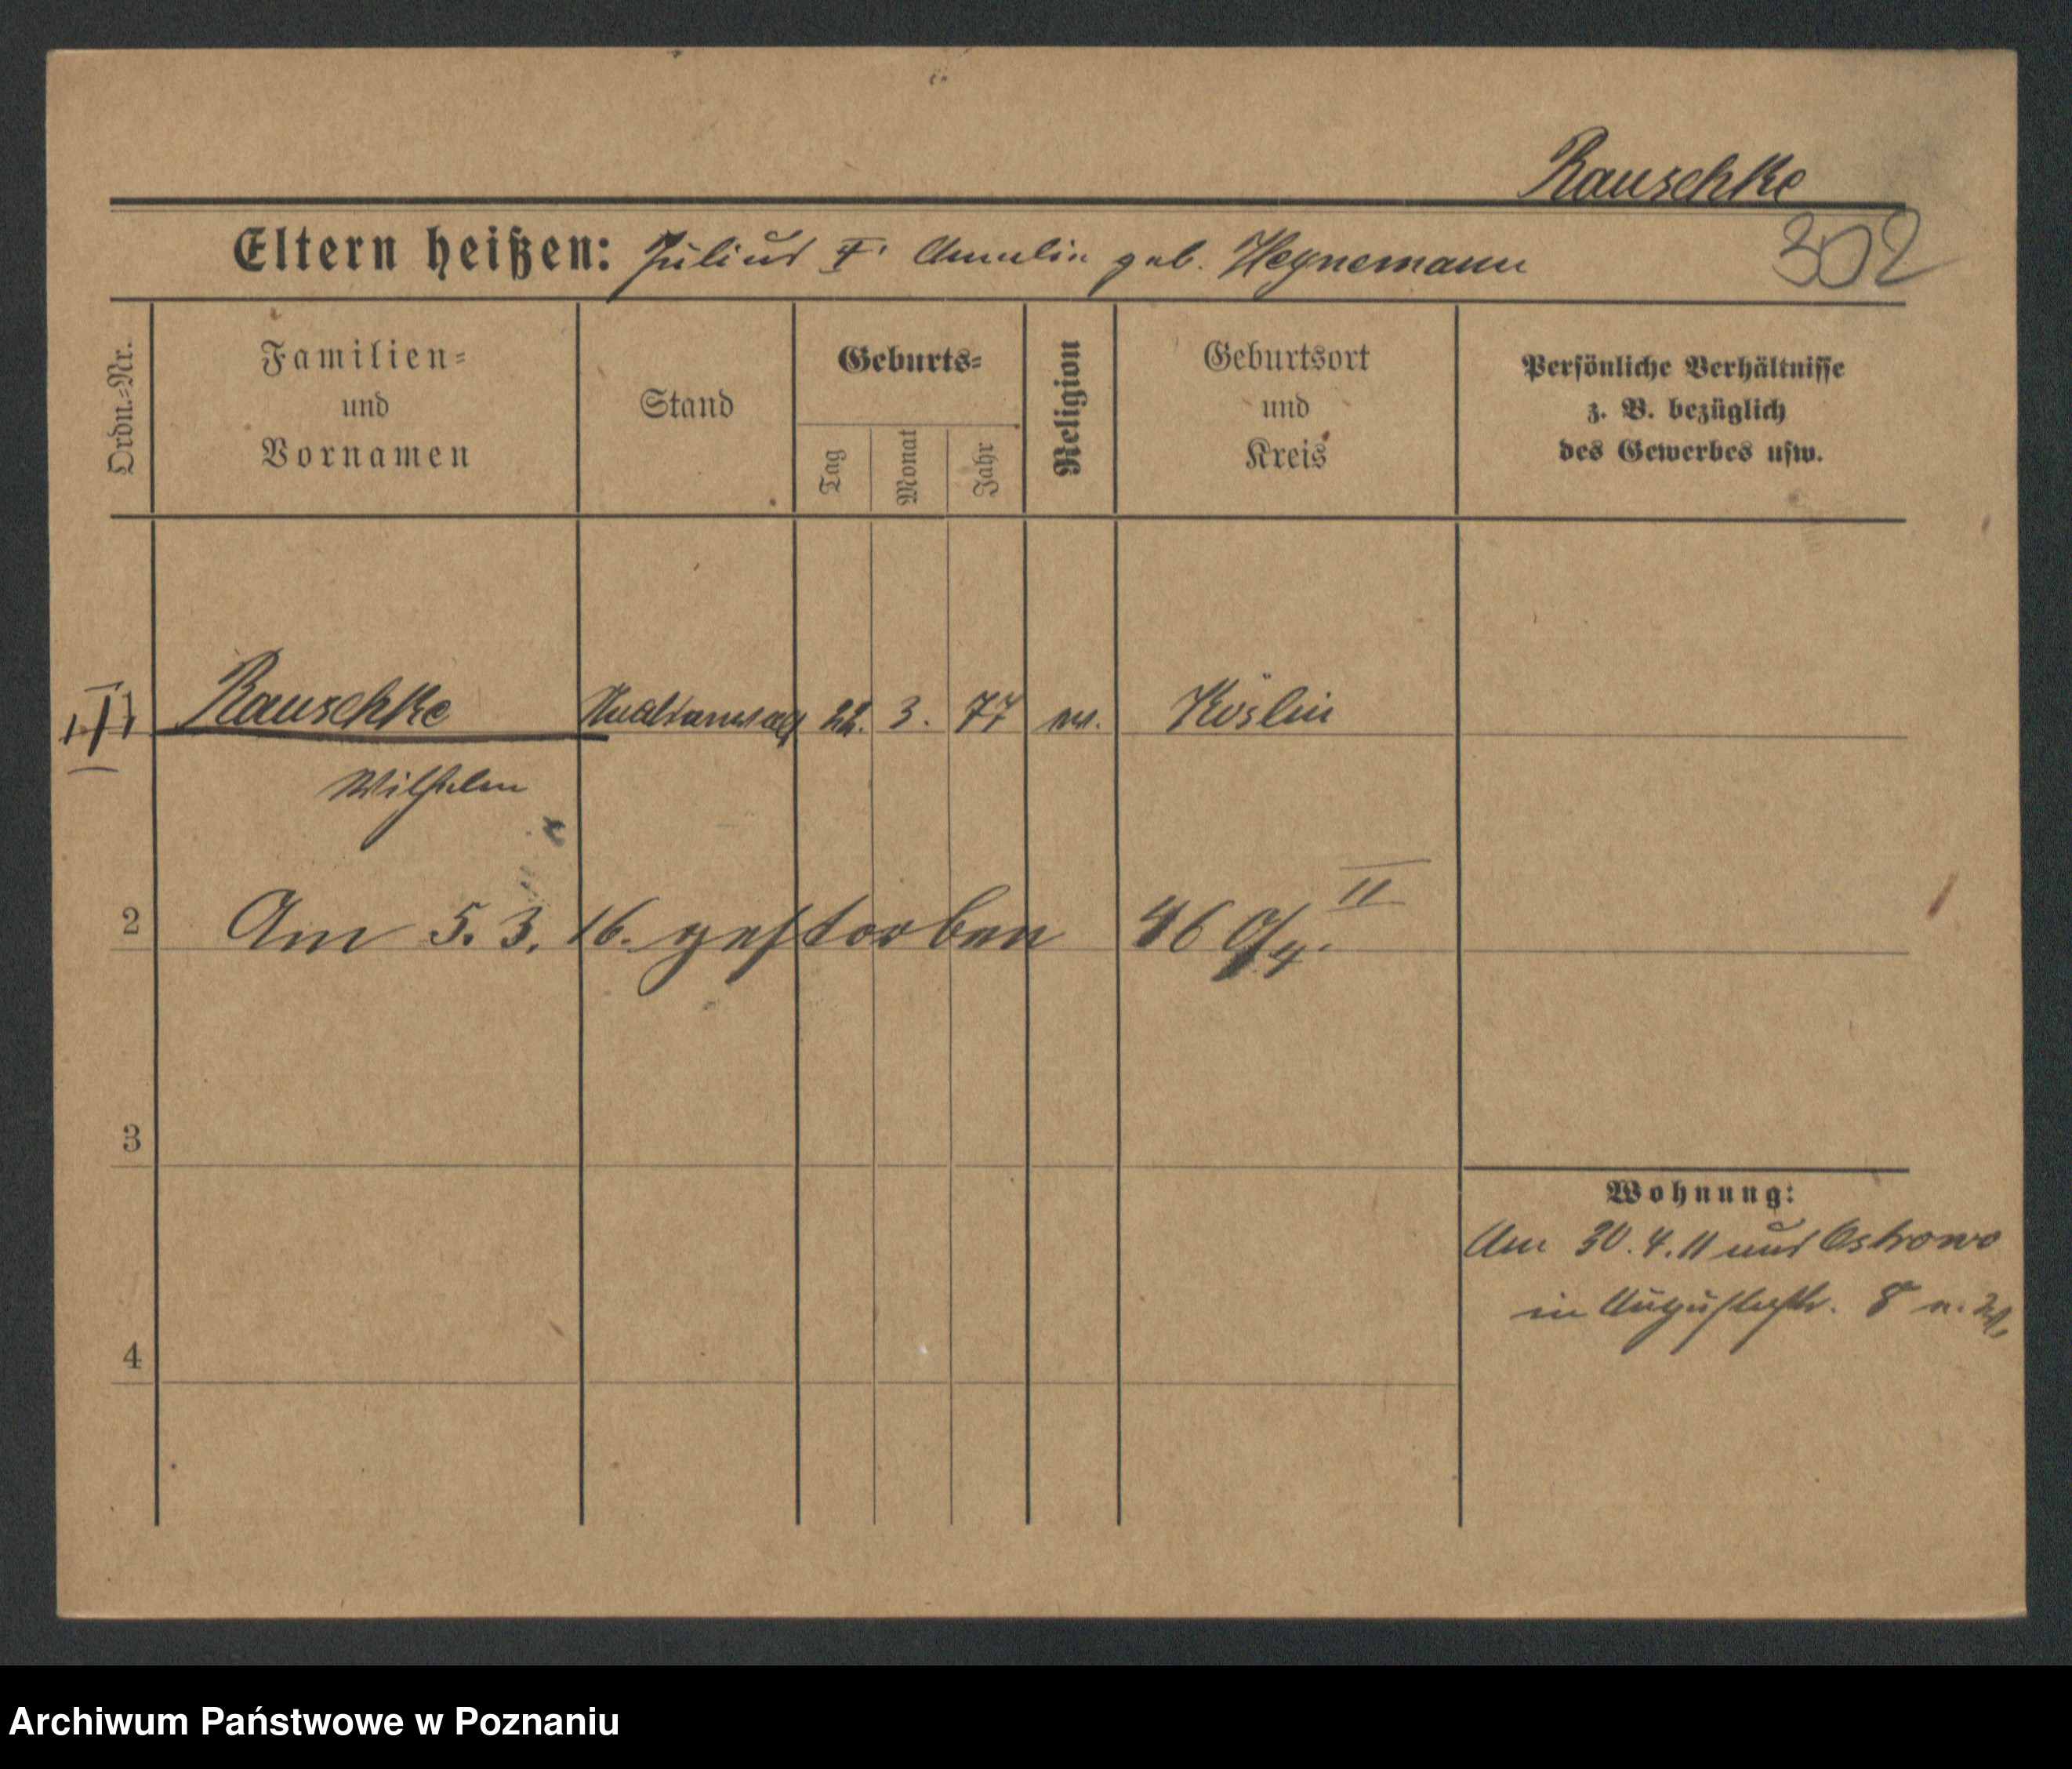 Rauschke
Eltern heißen: Julius Amalia geb. Heynemann
302
Ordn.=Nr.
Familien=
und
Vornamen
Stand
Geburts=
Tag
Monat
Jahr
Religion
Geburtsort
und
Kreis
Persönliche Verhältnisse
z. B. bezüglich
des Gewerbes usw.
Rauschke 22. 3. 77 ev. Köslin
Wilhelm
2 Am 5. 3. 16. gestorben 46
II
3
Wohnung:
Am 30. 4. 11 aus Ostrowo
in 8
4
Archiwum Państwowe w Poznaniu